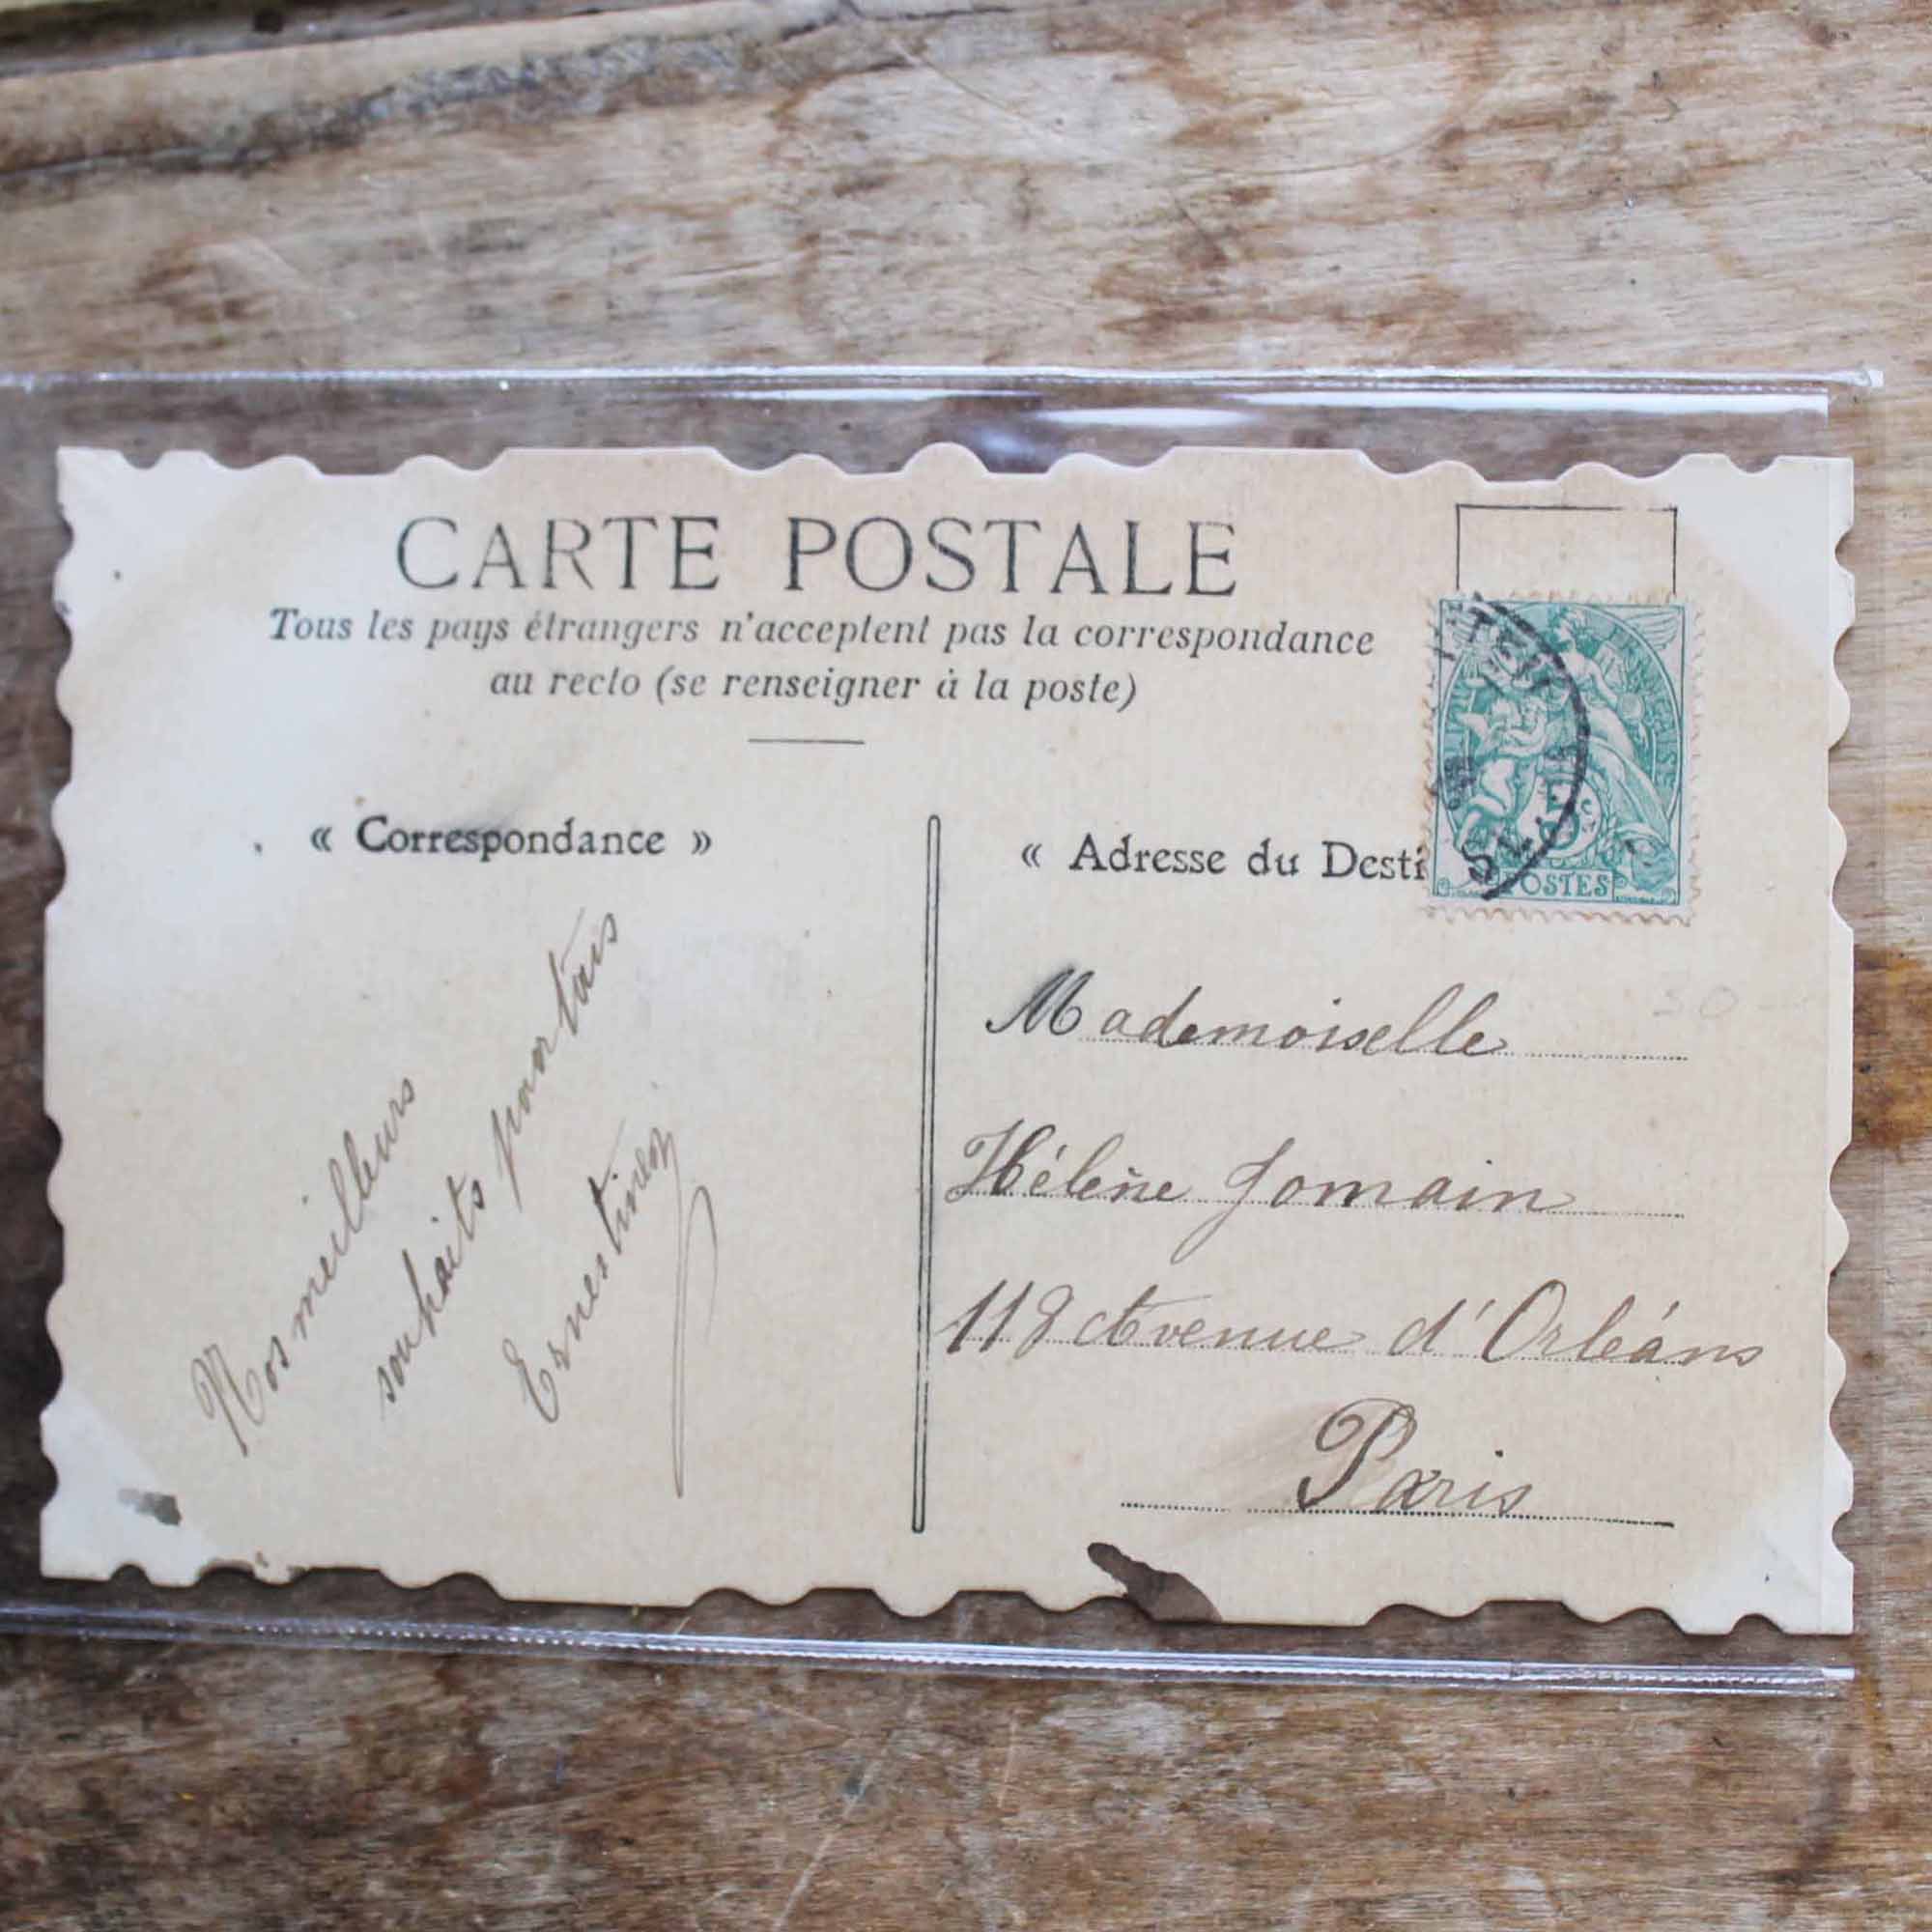 CARTE POSTALE
Tous les pays étrangers n'acceptent pas la correspondance
au recto (se renseigner à la poste)
« Correspondance »
Nos meilleurs
souhaits pour tous
Ernestine
« Adresse du Desti
Mademoiselle
Hélène Jomain
118 Avenue d'Orléans
Paris
5c
POSTES
30